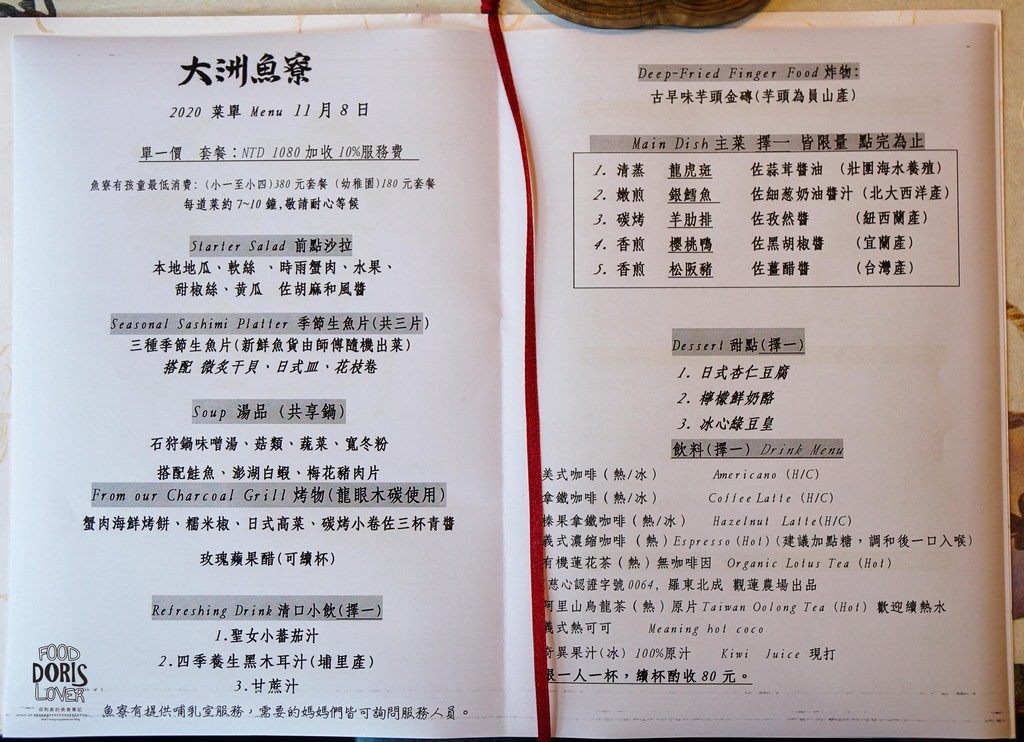 大洲魚寮
2020 菜單 Menu 11月8日
單一價 套餐：NTD 1080加收10%服務費
魚寮有孩童最低消費：(小一至小四)380元套餐 (幼稚園)180元套餐
每道菜約7~10鐘,敬請耐心等候
Starter Salad 前點沙拉
本地地瓜、軟絲 、時雨蟹肉、水果、
甜椒絲、黃瓜 佐胡麻和風醬
Seasonal Sashimi Platter 季節生魚片(共三片)
三種季節生魚片(新鮮魚貨由師傅隨機出菜)
搭配 微炙干貝，日式皿，花枝卷
Soup 湯品 (共享鍋)
石狩鍋味噌湯、菇類、蔬菜、寬冬粉
搭配鮭魚、澎湖白蝦、梅花豬肉片
From our Charcoal Grill 烤物(龍眼木碳使用)
蟹肉海鮮烤餅、糯米椒、日式高菜、碳烤小卷佐三杯青醬
玫瑰蘋果醋(可續杯)
Refreshing Drink 清口小飲(擇一)
1.聖女小蕃茄汁
2.四季養生黑木耳汁(埔里產)
3.甘蔗汁
FOOD
DORIS
LOVER
魚寮有提供哺乳室服務，需要的媽媽們皆可詢問服務人員。
Deep-Fried Finger Food 炸物：
古早味芋頭金磚(芋頭為員山產)
Main Dish 主菜 擇一 皆限量 點完為止
1. 清蒸 龍虎斑 佐蒜茸醬油 (壯圍海水養殖)
2. 嫩煎 銀鱈魚 佐細葱奶油醬汁 (北大西洋產)
3. 碳烤 羊肋排 佐孜然醬 (紐西蘭產)
4. 香煎 櫻桃鴨 佐黑胡椒醬 (宜蘭產)
5. 香煎 松阪豬 佐薑醋醬 (台灣產)
Dessert 甜點(擇一)
1. 日式杏仁豆腐
2. 檸檬鮮奶酪
3. 冰心綠豆皇
飲料(擇一) Drink Menu
美式咖啡(熱/冰) Americano (H/C)
拿鐵咖啡(熱/冰) Coffee Latte (H/C)
榛果拿鐵咖啡(熱/冰) Hazelnut Latte(H/C)
義式濃縮咖啡 (熱) Espresso (Hot) (建議加點糖，調和後一口入喉)
有機蓮花茶(熱)無咖啡因 Organic Lotus Tea (Hot)
慈心認證字號0064, 羅東北成 觀蓮農場出品
阿里山烏龍茶(熱)原片 Taiwan Oolong Tea (Hot) 歡迎續熱水
義式熱可可 Meaning hot coco
奇異果汁(冰) 100%原汁 Kiwi Juice 現打
限一人一杯，續杯酌收80元。